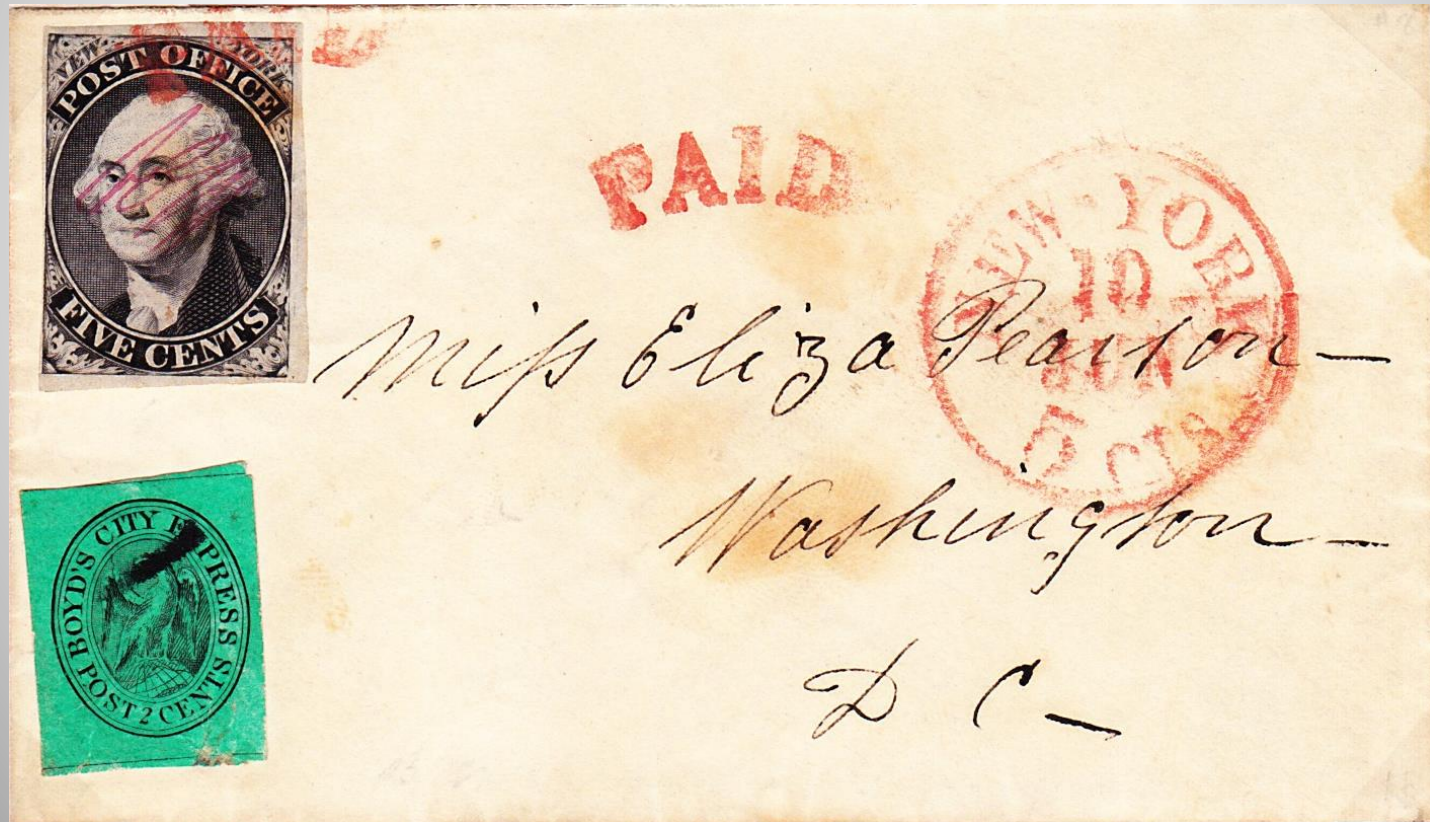 PAID
NEW YORK
POST OFFICE
FIVE CENTS
PAID
NEW-YORK
10
JUN
5 Cts
Miss Eliza Pearson
Washington
D C
BOYD'S CITY EXPRESS
POST 2 CENTS